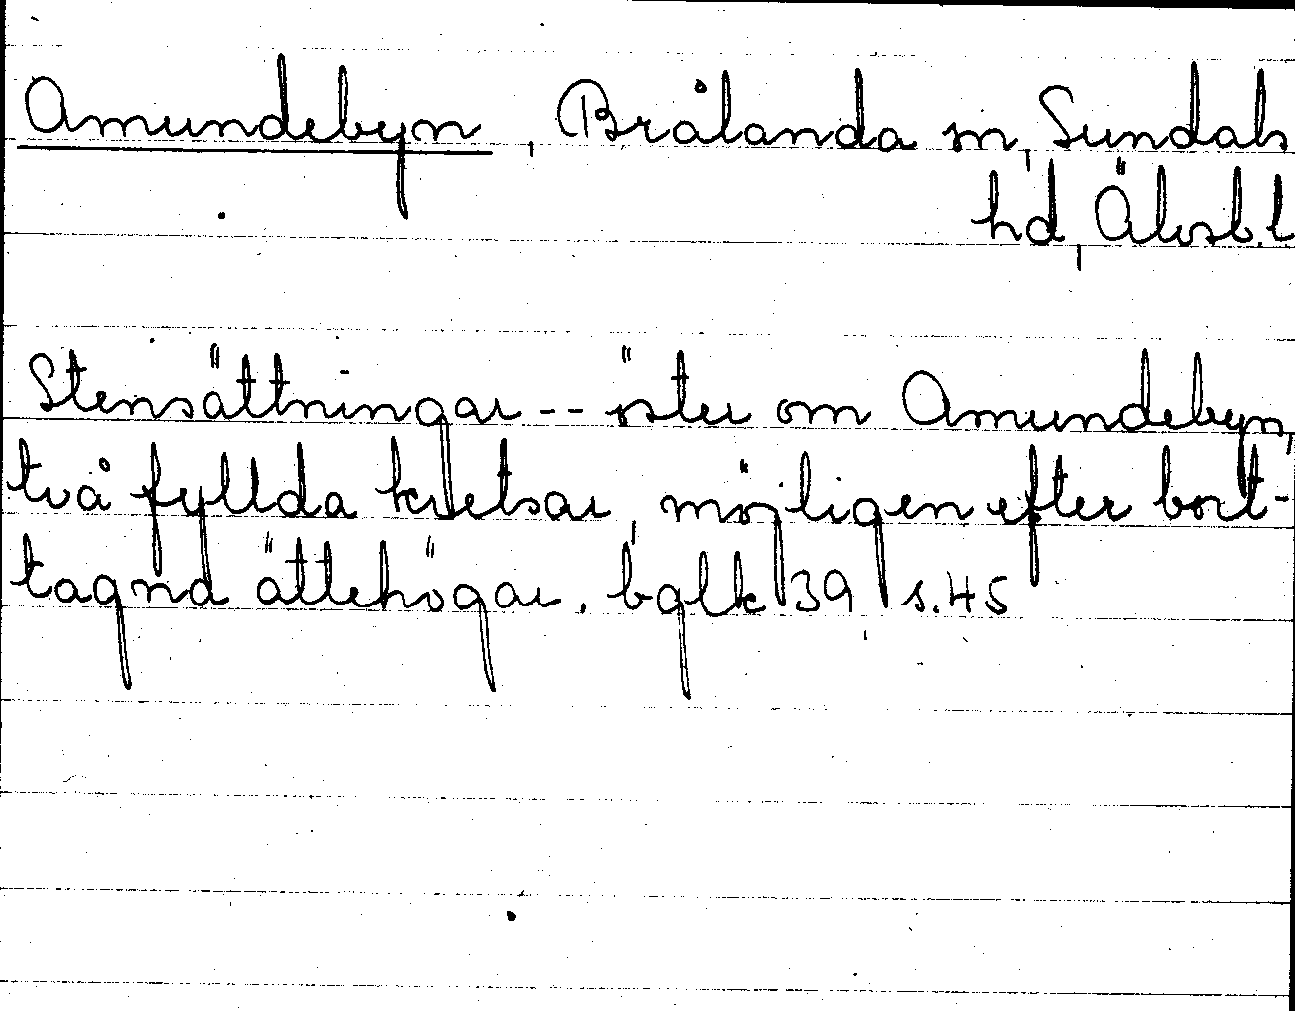 Amundebyn, Brålanda sn, Sundals
hd, Älvsb.l
Stensättningar -- öster om Amundebyn,
två fyllda kretsar, möjligen efter bort-
tagna ättehögar. bglk 39 s.45